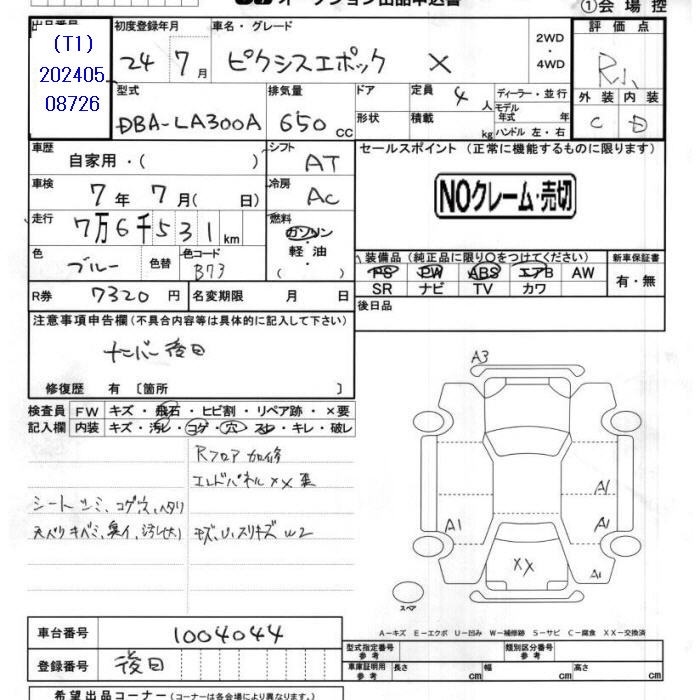 オークション出品申込書
①会場控
出品番号
(T1)
202405
08726
初度登録年月
24 7月
車名・グレード
ピクシスエポック X
2WD
・
4WD
評価点
型式
DBA-LA300A
排気量
650 cc
ドア
形状
定員 4 人
積載 kg
ディーラー・並行
モデル年式 年
ハンドル 左・右
外装 内装
C D
車歴
自家用・( )
シフト
AT
セールスポイント (正常に機能するものに限ります)
NOクレーム・売切
車検
7年 7月( 日)
冷房
AC
走行
7万6千531km
燃料
ガソリン
・
軽油
・
( )
色
ブルー
色替
色コード
B73
装備品 (純正品に限り○をつけてください)
PS PW ABS エアB AW
SR ナビ TV カワ
新車保証書
有・無
R券 7320円
名変期限 月 日
後日品
注意事項申告欄(不具合内容等は具体的に記入して下さい)
ナンバー後日
修復歴 有 〔箇所 〕
検査員
記入欄
FW キズ・飛石・ヒビ割・リペア跡・×要
内装 キズ・汚レ・コゲ・穴・スレ・キレ・破レ
Rフロア加修
エンドパネルXX歪
シートシミ、コゲ穴、ヘタリ
天バリキバミ、臭イ、汚レ(大)
モズ、U、スリキズW2
A3
A1
A1
A1
A1
XX
スペア
A－キズ E－エクボ U－凹み W－補修跡 S－サビ C－腐食 XX－交換済
車台番号 1004044
登録番号 後日
型式指定番号
参考
類別区分番号
参考
車庫証明用
参考
長さ cm
幅 cm
高さ cm
希望出品コーナー(コーナーは各会場により異なります。)